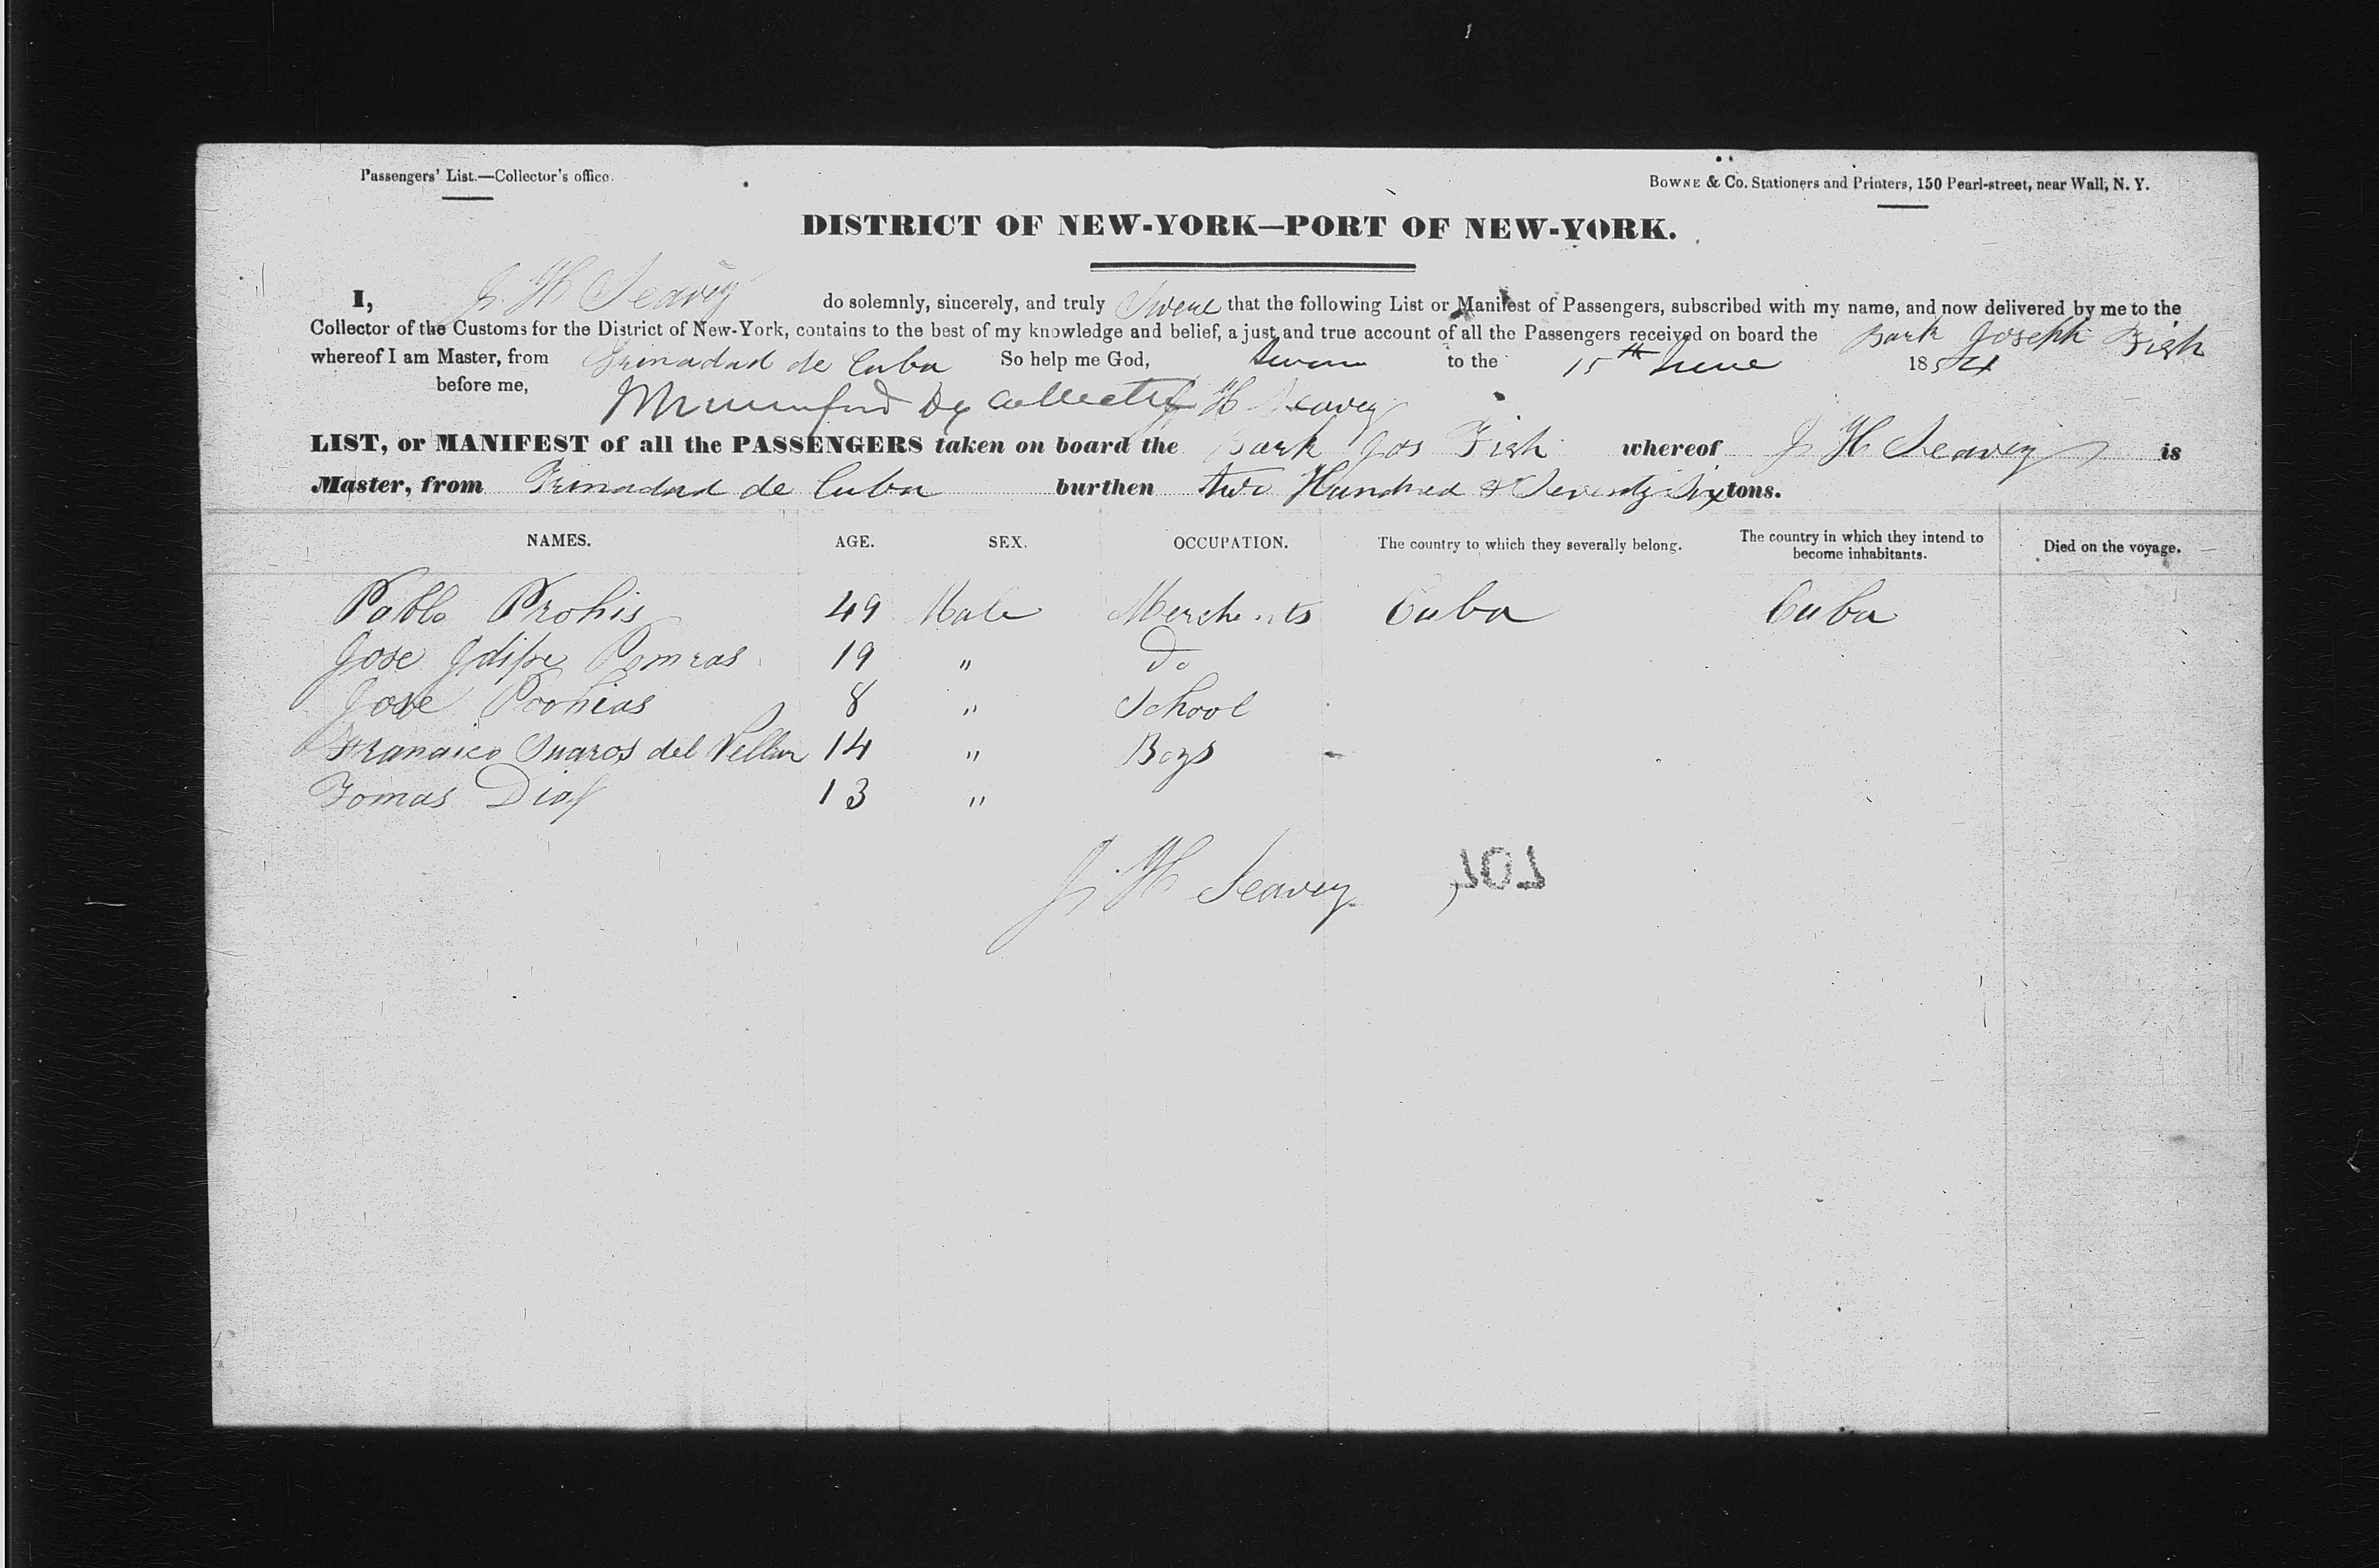 Passengers' List.—Collector's office.
BOWNE & Co. Stationers and Printers, 150 Pearl-street, near Wall, N. Y.
DISTRICT OF NEW-YORK—PORT OF NEW-YORK.
I, J. H Seavey do solemnly, sincerely, and truly Swear that the following List or Manifest of Passengers, subscribed with my name, and now delivered by me to the
Collector of the Customs for the District of New-York, contains to the best of my knowledge and belief, a just and true account of all the Passengers received on board the Bark Joseph Fish
whereof I am Master, from Trinadad de Cuba So help me God, Sworn to the 15th June 1854
before me, Mumford Dy Collector J H Seavey
LIST, or MANIFEST of all the PASSENGERS taken on board the Bark Jos Fish whereof J H Seavey is
Master, from Trinadad de Cuba burthen two Hundred & Seventy Six tons.
NAMES. AGE. SEX. OCCUPATION. The country to which they severally belong. The country in which they intend to become inhabitants. Died on the voyage.
Pablo Prohis 49 Male Merchants Cuba Cuba
Jose 19 " Do
Jose Prohias 8 " School
Suaros del 14 " Boys
Tomas Diaz 13 "
J. H Seavey 101